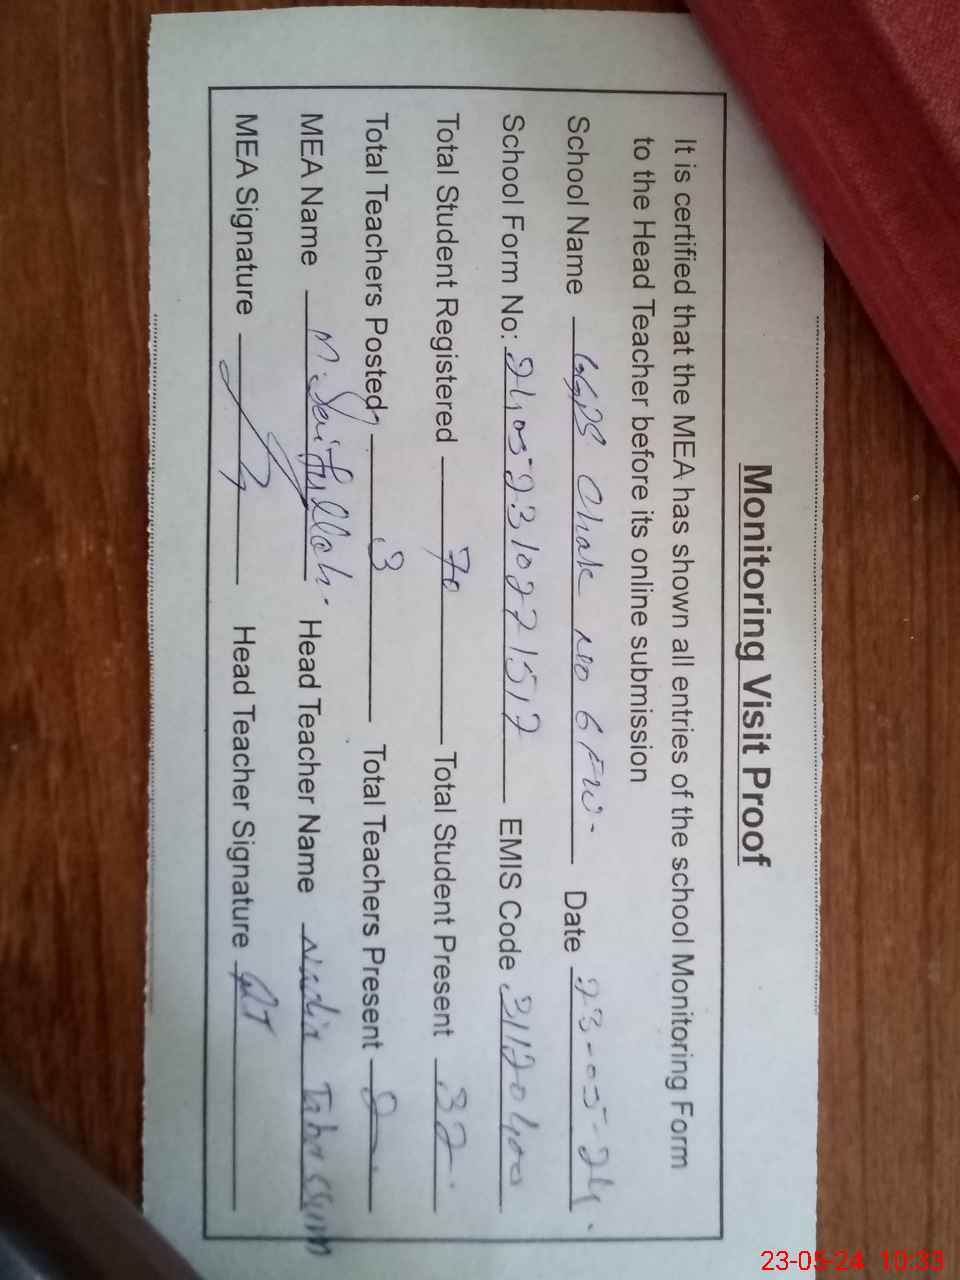 Monitoring Visit Proof
It is certified that the MEA has shown all entries of the school Monitoring Form
to the Head Teacher before its online submission
School Name GGPS Chak No 6 FW. Date 23-05-24.
School Form No: 24052310271517 EMIS Code 31120400
Total Student Registered 70 Total Student Present 32
Total Teachers Posted 3 Total Teachers Present 2
MEA Name M. Saifullah. Head Teacher Name Nadia Tabassum
MEA Signature Head Teacher Signature
23-05-24 10:33